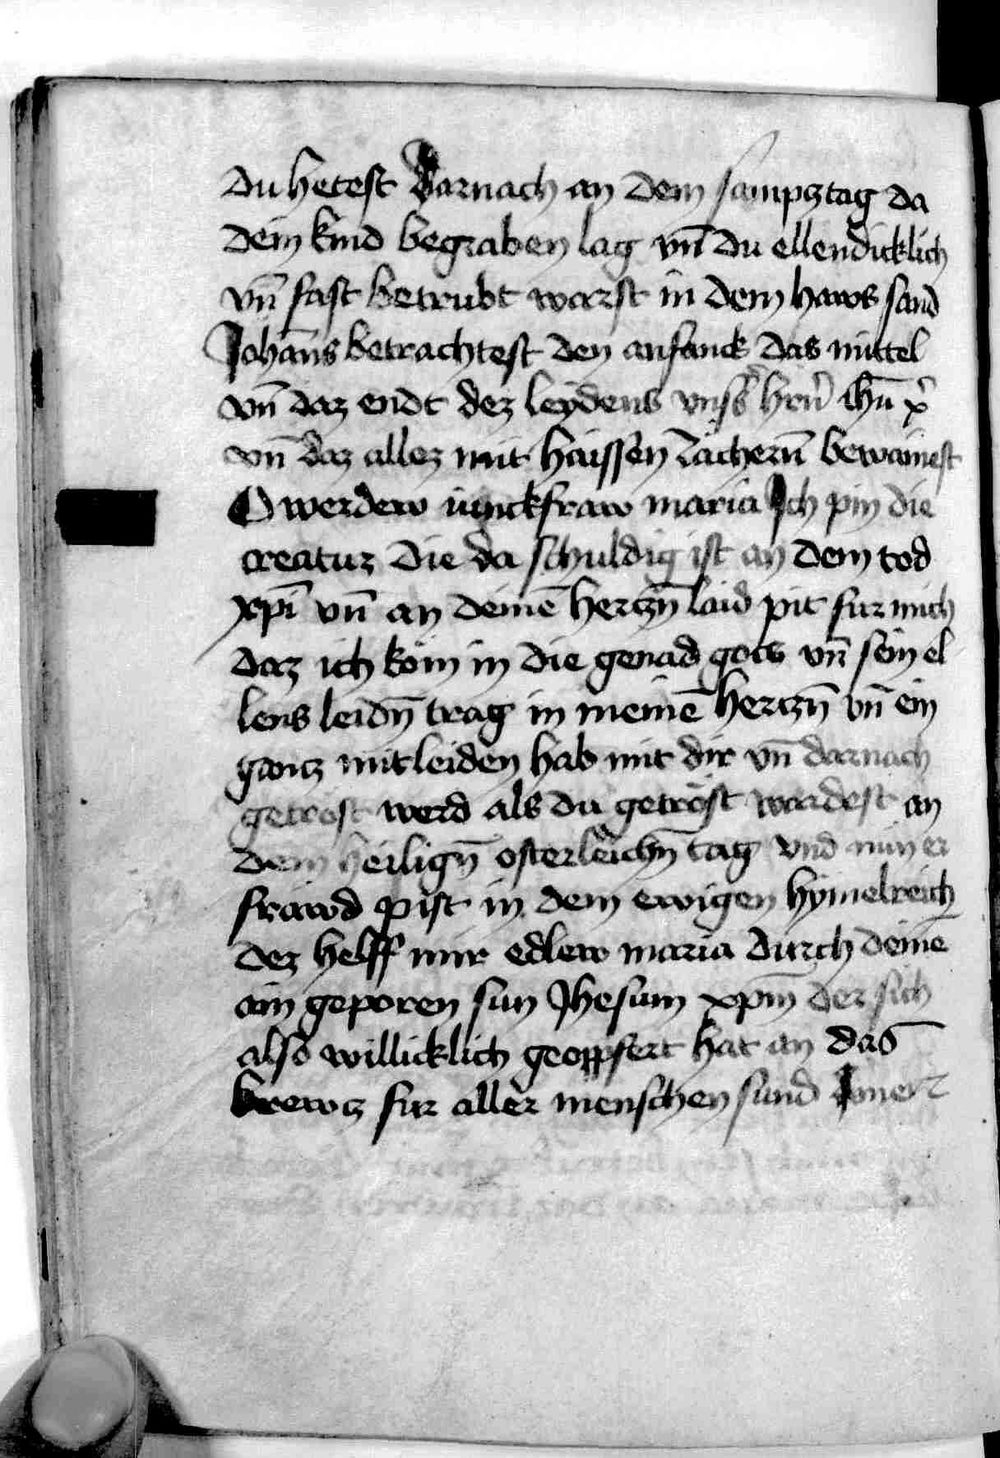 du hetest darnach an dem sampztag da
dein kind begraben lag vn̄ du ellendicklich
vn̄ fast betrubt warst in dem haws sand
Johān̄s betrachtest den anfanck das mittel
vn̄ daz endt dez leydens vnsˢ hrn̄ ihū x̄
vn̄ daz allez mit haissen zächern̄ bewainest
O werdew iunckfraw maria Ich pin die
creatur die da schuldig ist an dem tod
xp̄i vn̄ an deinē hertzn̄ laid pit fur mich
daz ich köm in die genad gots vn̄ sein el
lens leidn̄ trag in meinē hertzn̄ vn̄ ein
gantz mitleiden hab mit dir vn̄ darnach
getröst werd als du getröst wardest an
dem heilign̄ osterleichn̄ tag vnd nun er
fräwd pist in dem ewigen hymelreich
dez helff mir edlew maria durch deinē
ain geporen sun Jhesum xp̄m der sich
also willicklich geopfert hat an das
krewtz fur aller menschen sund